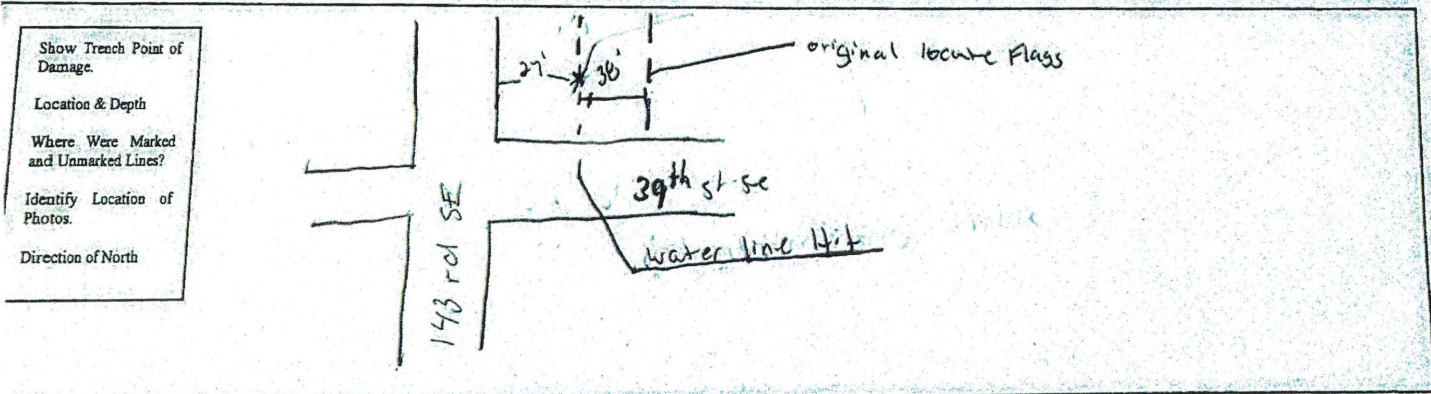 Show Trench Point of
Damage.
Location & Depth
Where Were Marked
and Unmarked Lines?
Identify Location of
Photos.
Direction of North
27'
38'
original locate Flags
39th st se
water line Hit
143rd SE